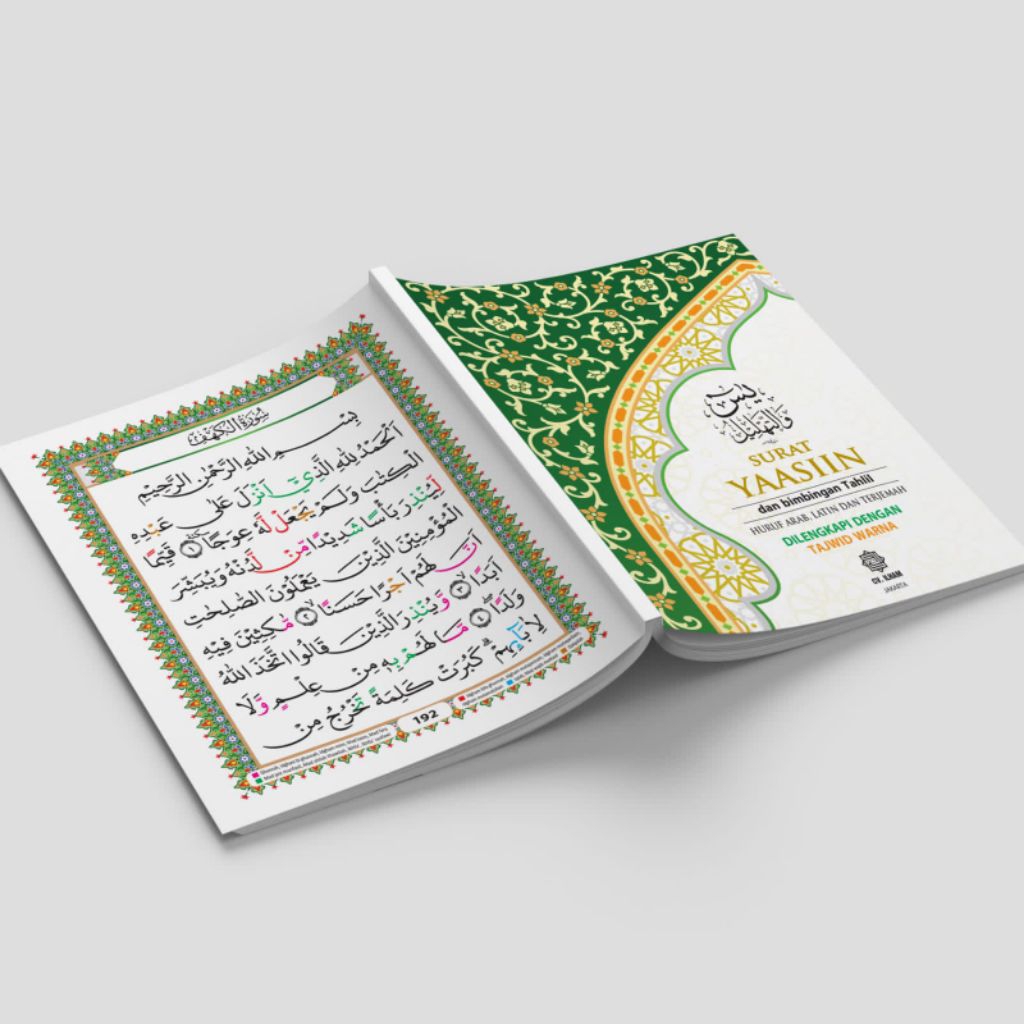 سُوْرَةُ الْكَهْفِ
بِسْمِ اللّٰهِ الرَّحْمٰنِ الرَّحِيْمِ
اَلْحَمْدُ لِلّٰهِ الَّذِيْٓ اَنْزَلَ عَلٰى عَبْدِهِ
الْكِتٰبَ وَلَمْ يَجْعَلْ لَّهٗ عِوَجًا ۜ ١ قَيِّمًا
لِّيُنْذِرَ بَأْسًا شَدِيْدًا مِّنْ لَّدُنْهُ وَيُبَشِّرَ
الْمُؤْمِنِيْنَ الَّذِيْنَ يَعْمَلُوْنَ الصّٰلِحٰتِ
اَنَّ لَهُمْ اَجْرًا حَسَنًا ۙ ٢ مَّاكِثِيْنَ فِيْهِ
اَبَدًا ۙ ٣ وَّيُنْذِرَ الَّذِيْنَ قَالُوا اتَّخَذَ اللّٰهُ
وَلَدًا ۖ ٤ مَا لَهُمْ بِهٖ مِنْ عِلْمٍ وَّلَا
لِاٰبَآئِهِمْ ۗ كَبُرَتْ كَلِمَةً تَخْرُجُ مِنْ
192
يٰسٓ
وَالتَّهْلِيْل
SURAT
YAASIIN
dan bimbingan Tahlil
HURUF ARAB, LATIN DAN TERJEMAH
DILENGKAPI DENGAN
TAJWID WARNA
CV. ILHAM
JAKARTA